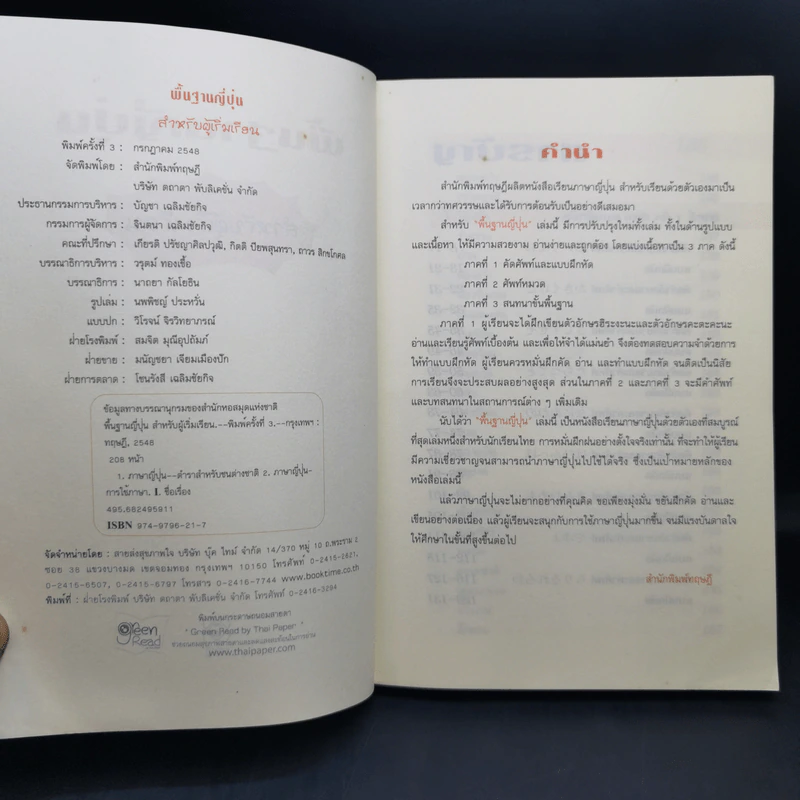 พื้นฐานญี่ปุ่น
สำหรับผู้เริ่มเรียน
พิมพ์ครั้งที่ 3 : กรกฎาคม 2548
จัดพิมพ์โดย : สำนักพิมพ์ทฤษฎี
บริษัท ตถาตา พับลิเคชั่น จำกัด
ประธานกรรมการบริหาร : บัญชา เฉลิมชัยกิจ
กรรมการผู้จัดการ : จินตนา เฉลิมชัยกิจ
คณะที่ปรึกษา : เกียรติ ปรัชญาศิลปวุฒิ, กิตติ ปิยพสุนทรา, ถาวร สิกขโกศล
บรรณาธิการบริหาร : วรุตม์ ทองเชื้อ
บรรณาธิการ : นาถยา กัลโยธิน
รูปเล่ม : นพพิชญ์ ประหวั่น
แบบปก : วิโรจน์ จิรวิทยาภรณ์
ฝ่ายโรงพิมพ์ : สมจิต มุณีอุปถัมภ์
ฝ่ายขาย : มนัญชยา เจียมเมืองปัก
ฝ่ายการตลาด : โชนรังสี เฉลิมชัยกิจ
ข้อมูลทางบรรณานุกรมของสำนักหอสมุดแห่งชาติ
พื้นฐานญี่ปุ่น สำหรับผู้เริ่มเรียน.--พิมพ์ครั้งที่ 3.--กรุงเทพฯ :
ทฤษฎี, 2548
208 หน้า
1. ภาษาญี่ปุ่น--ตำราสำหรับชนต่างชาติ 2. ภาษาญี่ปุ่น-
การใช้ภาษา. I. ชื่อเรื่อง
495.682495911
ISBN 974-9796-21-7
จัดจำหน่ายโดย : สายส่งสุขภาพใจ บริษัท บุ๊ค ไทม์ จำกัด 14/370 หมู่ 10 ถ.พระราม 2
ซอย 38 แขวงบางมด เขตจอมทอง กรุงเทพฯ 10150 โทรศัพท์ 0-2415-2621,
0-2415-6507, 0-2415-6797 โทรสาร 0-2416-7744 www.booktime.co.th
พิมพ์ที่ : ฝ่ายโรงพิมพ์ บริษัท ตถาตา พับลิเคชั่น จำกัด โทรศัพท์ 0-2416-3294
green Read
พิมพ์บนกระดาษถนอมสายตา
" Green Read by Thai Paper "
www.thaipaper.com
คำนำ
สำนักพิมพ์ทฤษฎีผลิตหนังสือเรียนภาษาญี่ปุ่น สำหรับเรียนด้วยตัวเองมาเป็น
เวลากว่าทศวรรษและได้รับการต้อนรับเป็นอย่างดีเสมอมา
สำหรับ "พื้นฐานญี่ปุ่น" เล่มนี้ มีการปรับปรุงใหม่ทั้งเล่ม ทั้งในด้านรูปแบบ
และเนื้อหา ให้มีความสวยงาม อ่านง่ายและถูกต้อง โดยแบ่งเนื้อหาเป็น 3 ภาค ดังนี้
ภาคที่ 1 คัดศัพท์และแบบฝึกหัด
ภาคที่ 2 ศัพท์หมวด
ภาคที่ 3 สนทนาขั้นพื้นฐาน
ภาคที่ 1 ผู้เรียนจะได้ฝึกเขียนตัวอักษรฮิระงะนะและตัวอักษรคะตะคะนะ
อ่านและเรียนรู้ศัพท์เบื้องต้น และเพื่อให้จำได้แม่นยำ จึงต้องทดสอบความจำด้วยการ
ให้ทำแบบฝึกหัด ผู้เรียนควรหมั่นฝึกคัด อ่าน และทำแบบฝึกหัด จนติดเป็นนิสัย
การเรียนจึงจะประสบผลอย่างสูงสุด ส่วนในภาคที่ 2 และภาคที่ 3 จะมีคำศัพท์
และบทสนทนาในสถานการณ์ต่าง ๆ เพิ่มเติม
นับได้ว่า "พื้นฐานญี่ปุ่น" เล่มนี้ เป็นหนังสือเรียนภาษาญี่ปุ่นด้วยตัวเองที่สมบูรณ์
ที่สุดเล่มหนึ่งสำหรับนักเรียนไทย การหมั่นฝึกฝนอย่างตั้งใจจริงเท่านั้น ที่จะทำให้ผู้เรียน
มีความเชี่ยวชาญจนสามารถนำภาษาญี่ปุ่นไปใช้ได้จริง ซึ่งเป็นเป้าหมายหลักของ
หนังสือเล่มนี้
แล้วภาษาญี่ปุ่นจะไม่ยากอย่างที่คุณคิด ขอเพียงมุ่งมั่น ขยันฝึกคัด อ่านและ
เขียนอย่างต่อเนื่อง แล้วผู้เรียนจะสนุกกับการใช้ภาษาญี่ปุ่นมากขึ้น จนมีแรงบันดาลใจ
ให้ศึกษาในขั้นที่สูงขึ้นต่อไป
สำนักพิมพ์ทฤษฎี